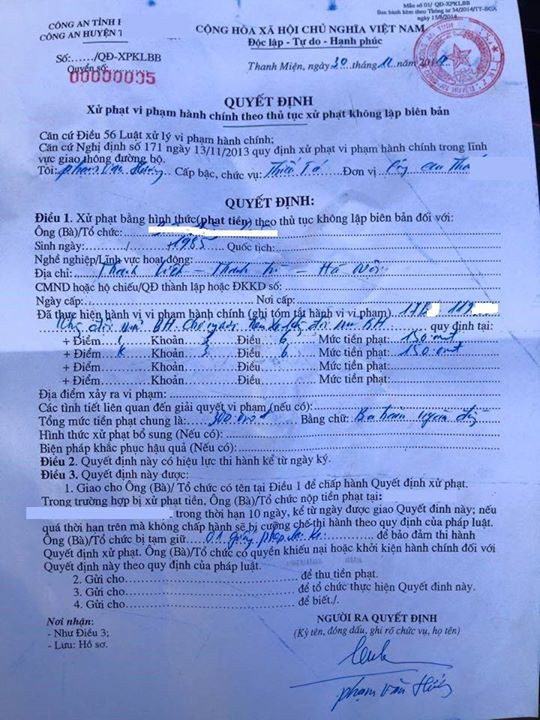 Mẫu số 01/ QĐ-XPKLBB
Ban hành kèm theo Thông tư 34/2014/TT-BCA
ngày 15/8/2014
CÔNG AN TỈNH
CÔNG AN HUYỆN
CỘNG HÒA XÃ HỘI CHỦ NGHĨA VIỆT NAM
Độc lập - Tự do - Hạnh phúc
Số:....../QĐ-XPKLBB
Quyển số:
Thanh Miện, ngày 30 tháng 11 năm
QUYẾT ĐỊNH
Xử phạt vi phạm hành chính theo thủ tục xử phạt không lập biên bản
Căn cứ Điều 56 Luật xử lý vi phạm hành chính;
Căn cứ Nghị định số 171 ngày 13/11/2013 quy định xử phạt vi phạm hành chính trong lĩnh
vực giao thông đường bộ.
Tôi: Phạm Văn Cấp bậc, chức vụ: Thiếu Tá Đơn vị Công an
QUYẾT ĐỊNH:
Điều 1. Xử phạt bằng hình thức (phạt tiền) theo thủ tục không lập biên bản đối với:
Ông (Bà)/Tổ chức:
Sinh ngày: / 1985 Quốc tịch:
Nghề nghiệp/Lĩnh vực hoạt động:
Địa chỉ: Thanh - Thanh - Hà Nội
CMND hoặc hộ chiếu/QĐ thành lập hoặc ĐKKD số:
Ngày cấp: Nơi cấp:
Đã thực hiện hành vi vi phạm hành chính (ghi tóm tắt hành vi vi phạm)
đội mũ BH. Chở người đội mũ BH quy định tại:
+ Điểm i Khoản 3 Điều 6 Mức tiền phạt: 150.000đ
+ Điểm k Khoản 3 Điều 6 Mức tiền phạt: 150.000đ
+ Điểm Khoản Điều Mức tiền phạt:
+ Điểm Khoản Điều Mức tiền phạt:
Địa điểm xảy ra vi phạm:
Các tình tiết liên quan đến giải quyết vi phạm (nếu có):
Tổng mức tiền phạt chung là: 300.000đ Bằng chữ: Ba trăm ngàn đồng
Hình thức xử phạt bổ sung (Nếu có):
Biện pháp khắc phục hậu quả (Nếu có):
Điều 2. Quyết định này có hiệu lực thi hành kể từ ngày ký.
Điều 3. Quyết định này được:
1. Giao cho Ông (Bà)/ Tổ chức có tên tại Điều 1 để chấp hành Quyết định xử phạt.
Trong trường hợp bị xử phạt tiền, Ông (Bà)/Tổ chức nộp tiền phạt tại:
trong thời hạn 10 ngày, kể từ ngày được giao Quyết định này; nếu
quá thời hạn trên mà không chấp hành sẽ bị cưỡng chế thi hành theo quy định của pháp luật.
Ông (Bà)/Tổ chức bị tạm giữ 01 giấy phép lái xe để bảo đảm thi hành
Quyết định xử phạt. Ông (Bà)/Tổ chức có quyền khiếu nại hoặc khởi kiện hành chính đối với
Quyết định này theo quy định của pháp luật.
2. Gửi cho để thu tiền phạt.
3. Gửi cho để tổ chức thực hiện Quyết định này.
4. Gửi cho để biết./.
Nơi nhận:
- Như Điều 3;
- Lưu: Hồ sơ.
NGƯỜI RA QUYẾT ĐỊNH
(Ký tên, đóng dấu, ghi rõ chức vụ, họ tên)
Phạm Văn